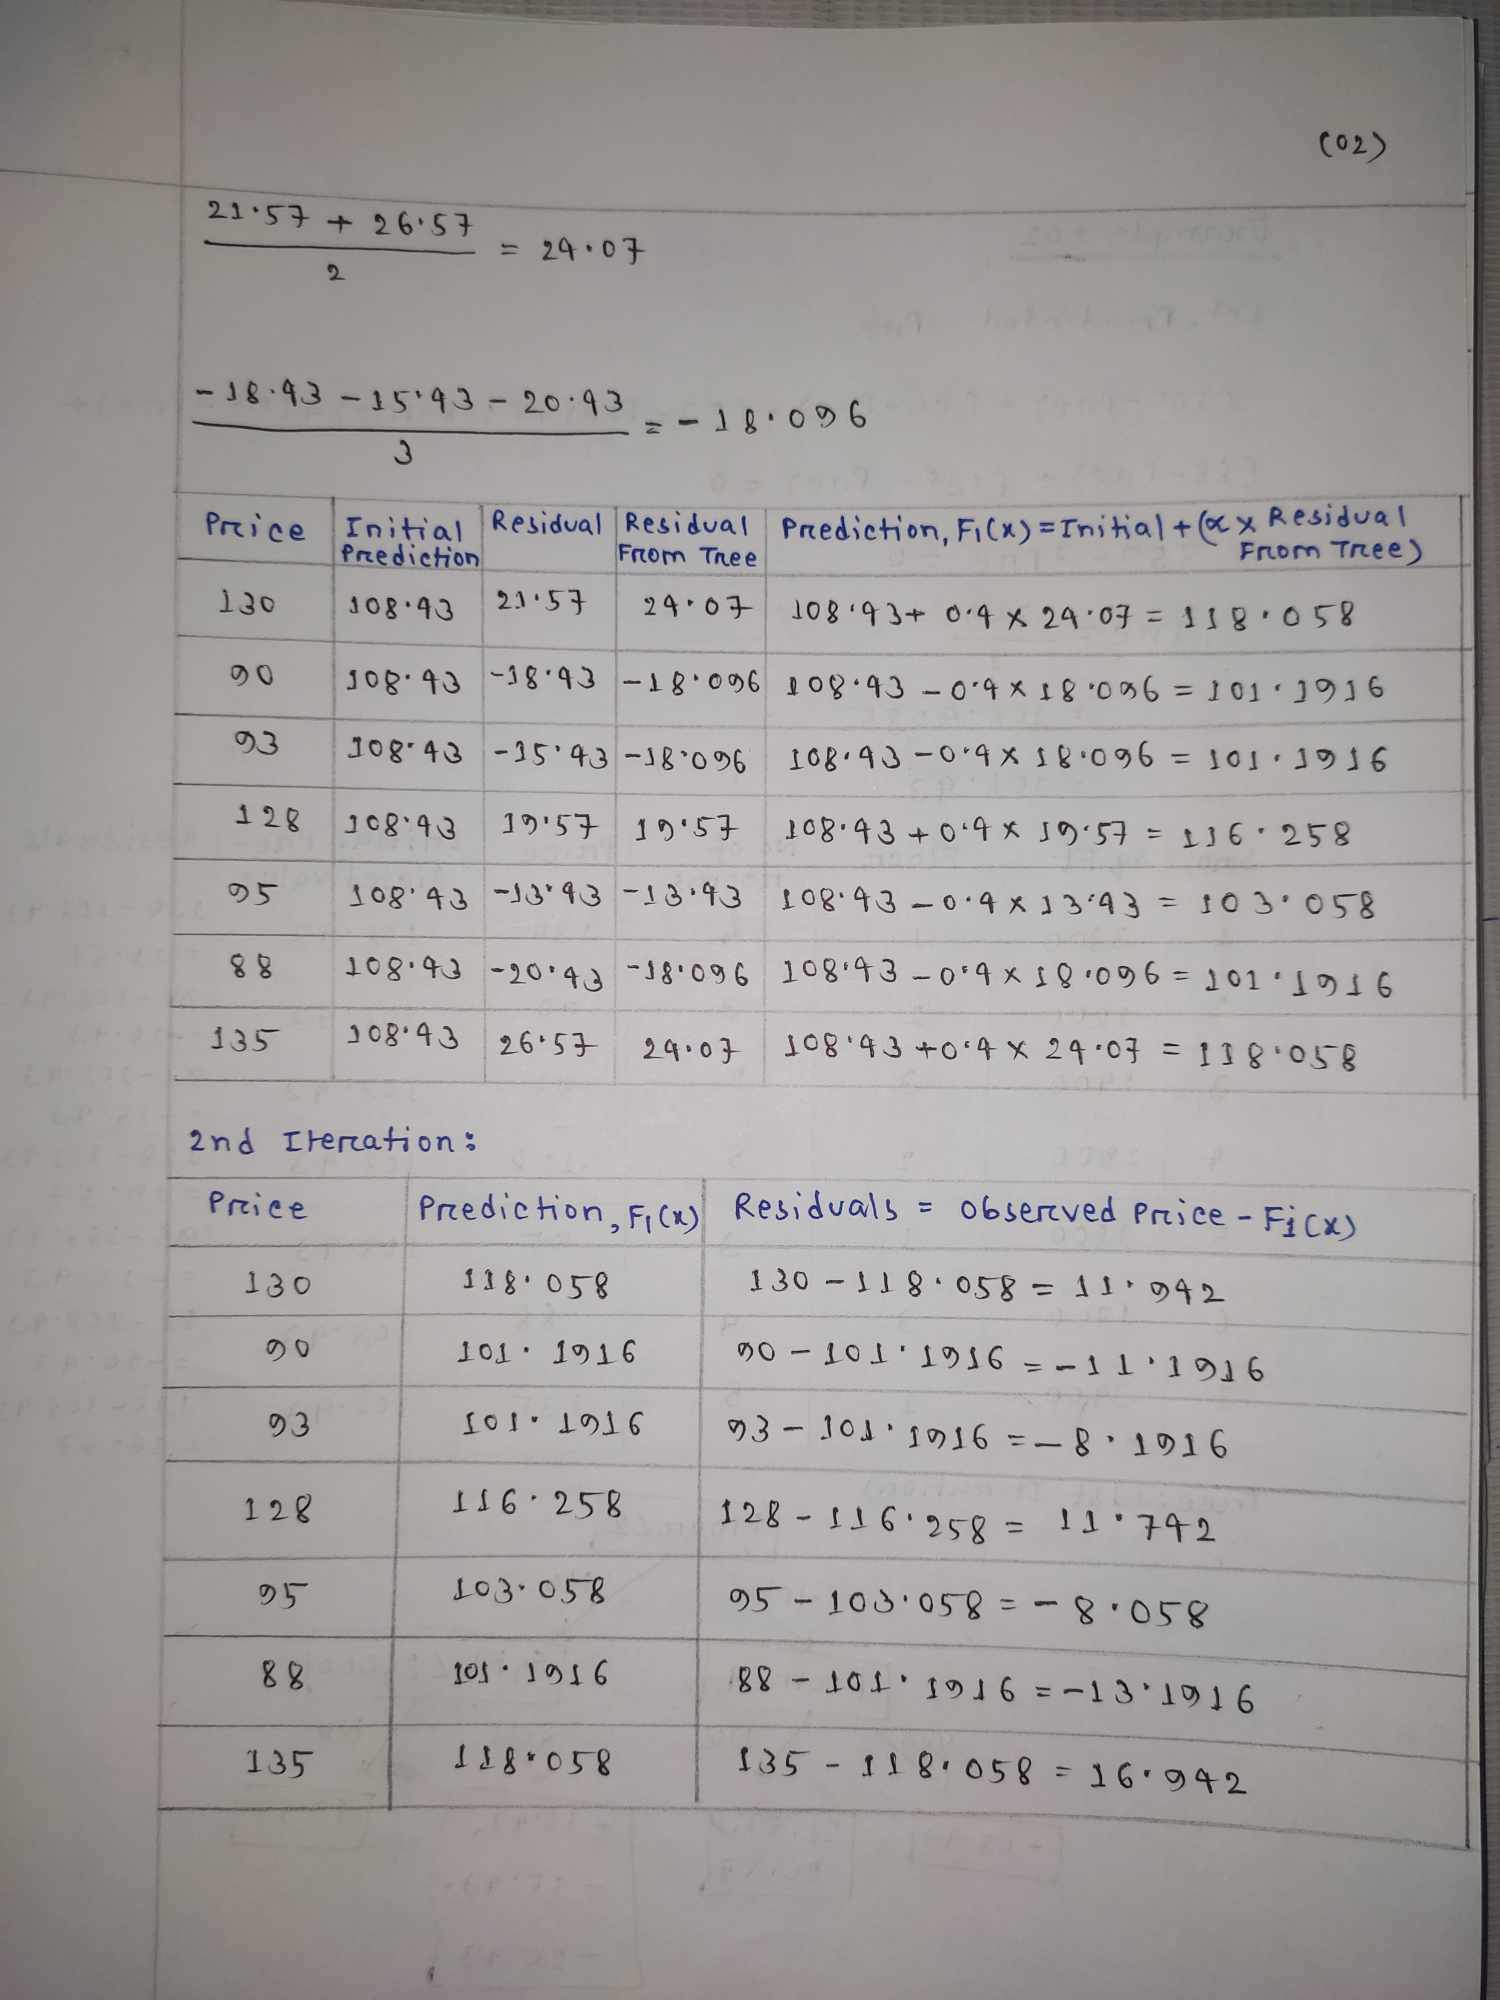 (02)
21.57 + 26.57
2
= 24.07
-18.43 - 15.43 - 20.43
3
= -18.096
Price Initial Prediction Residual Residual From Tree Prediction, F1(x) = Initial + (α x Residual From Tree)
130 108.43 21.57 24.07 108.43 + 0.4 x 24.07 = 118.058
90 108.43 -18.43 -18.096 108.43 - 0.4 x 18.096 = 101.1916
93 108.43 -15.43 -18.096 108.43 - 0.4 x 18.096 = 101.1916
128 108.43 19.57 19.57 108.43 + 0.4 x 19.57 = 116.258
95 108.43 -13.43 -13.43 108.43 - 0.4 x 13.43 = 103.058
88 108.43 -20.43 -18.096 108.43 - 0.4 x 18.096 = 101.1916
135 108.43 26.57 24.07 108.43 + 0.4 x 24.07 = 118.058
2nd Iteration:
Price Prediction, F1(x) Residuals = observed Price - F1(x)
130 118.058 130 - 118.058 = 11.942
90 101.1916 90 - 101.1916 = -11.1916
93 101.1916 93 - 101.1916 = -8.1916
128 116.258 128 - 116.258 = 11.742
95 103.058 95 - 103.058 = -8.058
88 101.1916 88 - 101.1916 = -13.1916
135 118.058 135 - 118.058 = 16.942